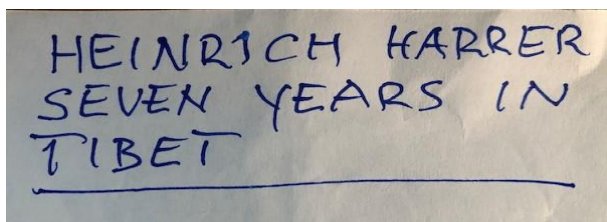 HEINRICH HARRER
SEVEN YEARS IN
TIBET